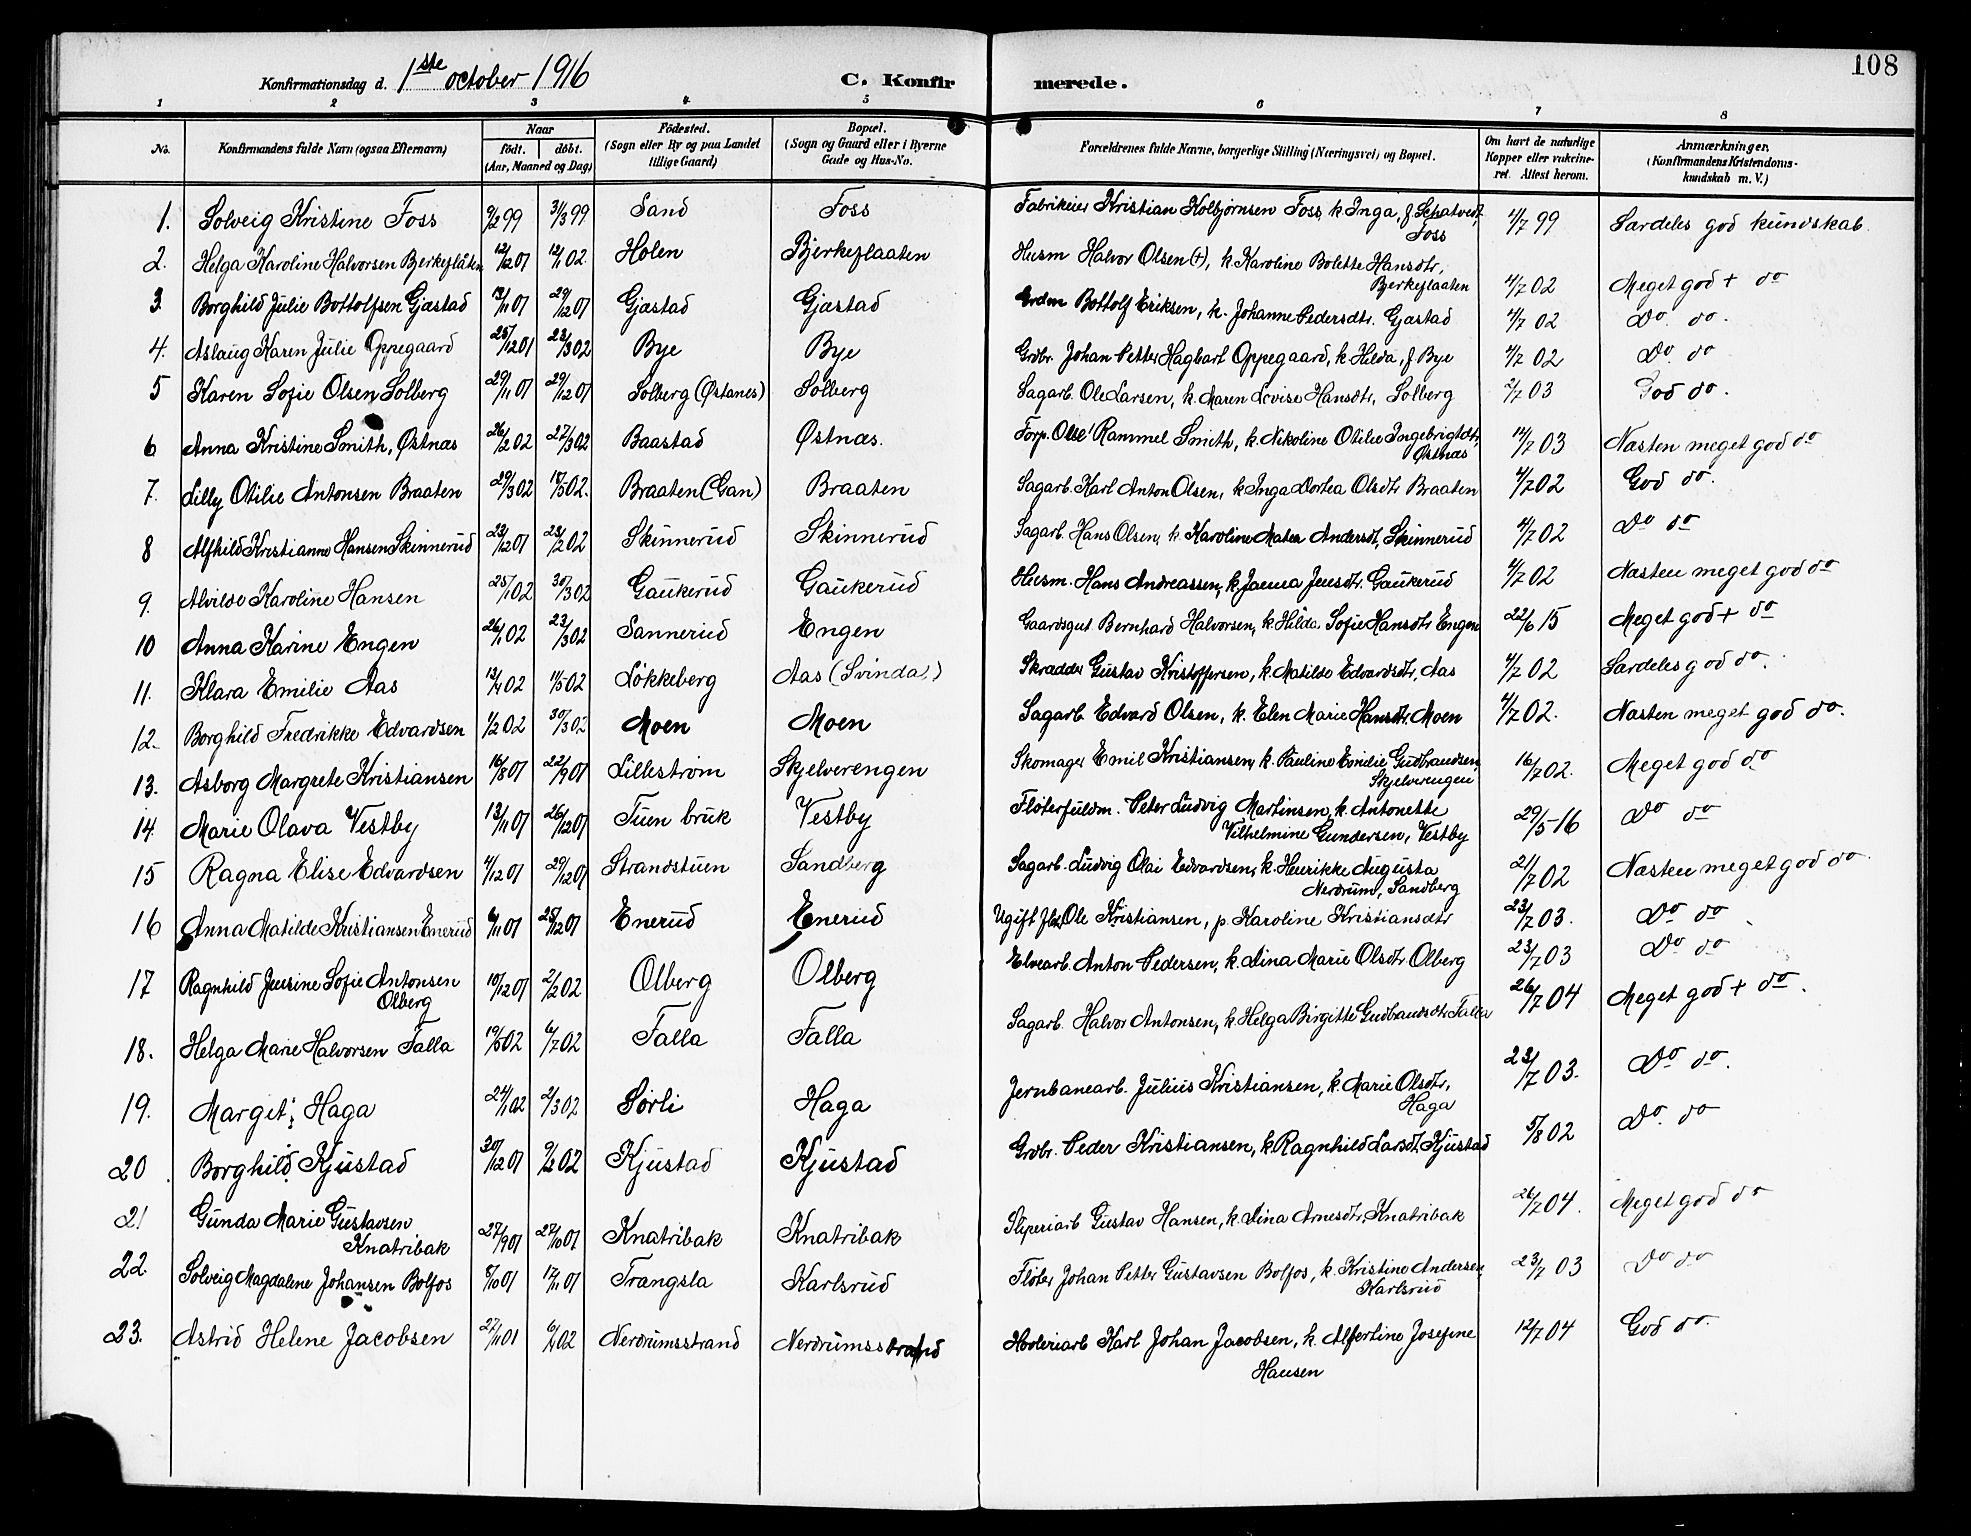 108
Konfirmationsdag d. 1ste october 1916 C. Konfir merede.
1 2 3 4 5 6 7 8
No. Konfirmandens fulde Navn (ogsaa Efternavn) Naar født. døbt. (Aar, Maaned og Dag) Födested. (Sogn eller By og paa Landet tillige Gaard) Bopæl. (Sogn og Gaard eller i Byerne Gade og Hus-No. Forældrenes fulde Navne, borgerlige Stilling (Næringsvei) og Bopæl. Om havt de naturlige Kopper eller vakcineret. Attest herom. Anmærkninger, (Konfirmandens Kristendomskundskab m. V.)
1. Solveig Kristine Foss 9/2 99 31/3 99 Sand Foss Fabrikeier Kristian Kolbjørnsen Foss, k. Inga, f. Foss 4/7 99 Særdeles god kundskab
2. Helga Karoline Halvorsen Bjerkeflåten 12/12 01 12/1 02 Holen Bjerkeflaaten Husm Halvor Olsen (+), k. Karoline Bolette Hansdtr, Bjerkeflaaten 4/7 02 Meget god + do
3. Borghild Julie Bottolfsen Gjæstad 13/11 01 29/12 01 Gjæstad Gjæstad Grdm Bottolf Eriksen, k. Johanne Pedersdtr. Gjæstad 4/7 02 Do. do.
4. Aslaug Karen Julie Oppegaard 25/12 01 23/3 02 Bye Bye Grdbr. Johan Petter Hagbart Oppegaard, k Hilda, f Bye 4/7 02 Do. do
5 Karen Sofie Olsen Solberg 29/11 01 29/12 01 Solberg (Østanes) Solberg Sagarb. Ole Larsen, k. Maren Lovise Hansdtr, Solberg 2/7 03 God do.
6 Anna Kristine Smith, Østnæs 26/2 02 27/3 02 Baastad Østnæs. Forp. Rammel Smith, k. Nikoline Otilie Ingebrigtdtr, Østnæs 14/7 03 Næsten meget god do
7. Lilly Otilie Antonsen Braaten 29/3 02 18/5 02. Braaten (Gan) Braaten Sagarb. Karl Anton Olsen, k Inga Dortea Olsdtr Braaten 4/7 02 God do.
8 Alfhild Kristianne Hansen Skinnerud 23/12 01 23/2 02 Skinnerud Skinnerud Sagarb. Hans Olsen, k. Karoline Matea Andersdt, Skinnerud 4/7 02 Do do
9. Alvilde Karoline Hansen 25/1 02 30/3 02 Gaukerud Gaukerud Husm. Hans Andreassen, k. Janna Jensdtr. Gaukerud 4/7 02 Næsten meget god do
10 Anna Karine Engen 26/1 02 23/3 02 Sannerud Engen Gaardsgut Bernhard Halvorsen, k. Hilda Sofie Hansdtr Engen 22/6 15 Meget god + do
11. Klara Emilie Aas 13/4 02 11/5 02 Løkkeberg Aas (Svindal) Skrædder Gustav Kristoffersen, k. Matilde Edvardsdtr, Aas 4/7 02 Særdeles god do.
12. Borghild Fredrikke Edvardsen 1/2 02 30/3 02 Moen Moen Sagarb. Edvard Olsen, k. Elen Marie Hansdtr, Moen 4/7 02. Næsten meget god do.
13. Asborg Margrete Kristiansen 16/8 01 22/9 01 Lillestrøm Skjelverengen Skomager Emil Kristiansen, k. Pauline Emilie Gudbrandsen, Skjelverengen 16/7 02. Meget god do
14. Marie Olava Vestby 13/11 01 26/12 01 Tuen bruk Vestby Fløterfuldm. Peter Ludvig Martinsen, k. Antonette Vilhelmine Gundersen, Vestby 29/5-16 Do do
15 Ragna Elise Edvardsen 4/12 01 29/12 01 Strandstuen Sandberg Sagarb. Ludvig Olai Edvardsen, k. Henrikke Augusta Nerdrum, Sandberg 21/7 02 Næsten meget god do.
16 Anna Matilde Kristiansen Enerud 6/11 01 25/12 01 Enerud Enerud Ugift Ole Kristiansen, p. Karoline Kristiansdtr 23/7 03. Do do
17 Ragnhild Jensine Sofie Antonsen Olberg 10/12 01 2/2 02 Olberg Olberg Elvearb. Anton Pedersen, k. Lina Marie Olsdtr. Olberg 23/7 03 Do do
18. Helga Marie Halvorsen Falla 19/5 02 6/7 02 Falla Falla Sagarb. Halvor Antonsen, k. Helga Birgitte Gudbrandsdtr Falla 26/7 04 Meget god + do.
19. Margit Haga 24/1 02 2/3 02 Sørli Haga Jernbanearb. Julius Kristiansen, k. Marie Olsdtr, Haga 23/7 03. Do do.
20. Borghild Kjustad 30/12 01 9/2 02 Kjustad Kjustad Grdbr. Peder Kristiansen, k. Ragnhild Larsdt. Kjustad 5/8 02 Do. do
21 Gunda Marie Gustavsen Knatribak 27/9 01 27/10 01 Knatribak Knatribak Sliperiarb Gustav Hansen, k. Lina Arnesdtr, Knatribak 26/7 04. Meget god do
22. Solveig Magdalene Johansen Bolfos 8/10 01 17/11 01 Trangsla Karlsrud Fløter Johan Petter Gustavsen Bolfos, k. Kristine Andersen, Karlsrud 23/7 03 Do do
23. Astrid Helene Jacobsen 27/11 01 6/1 02 Nerdrumsstrand Nerdrumsstrand Høvleriarb Karl Johan Jacobsen, k. Albertine Josefine Hansen 12/7 04 God do.